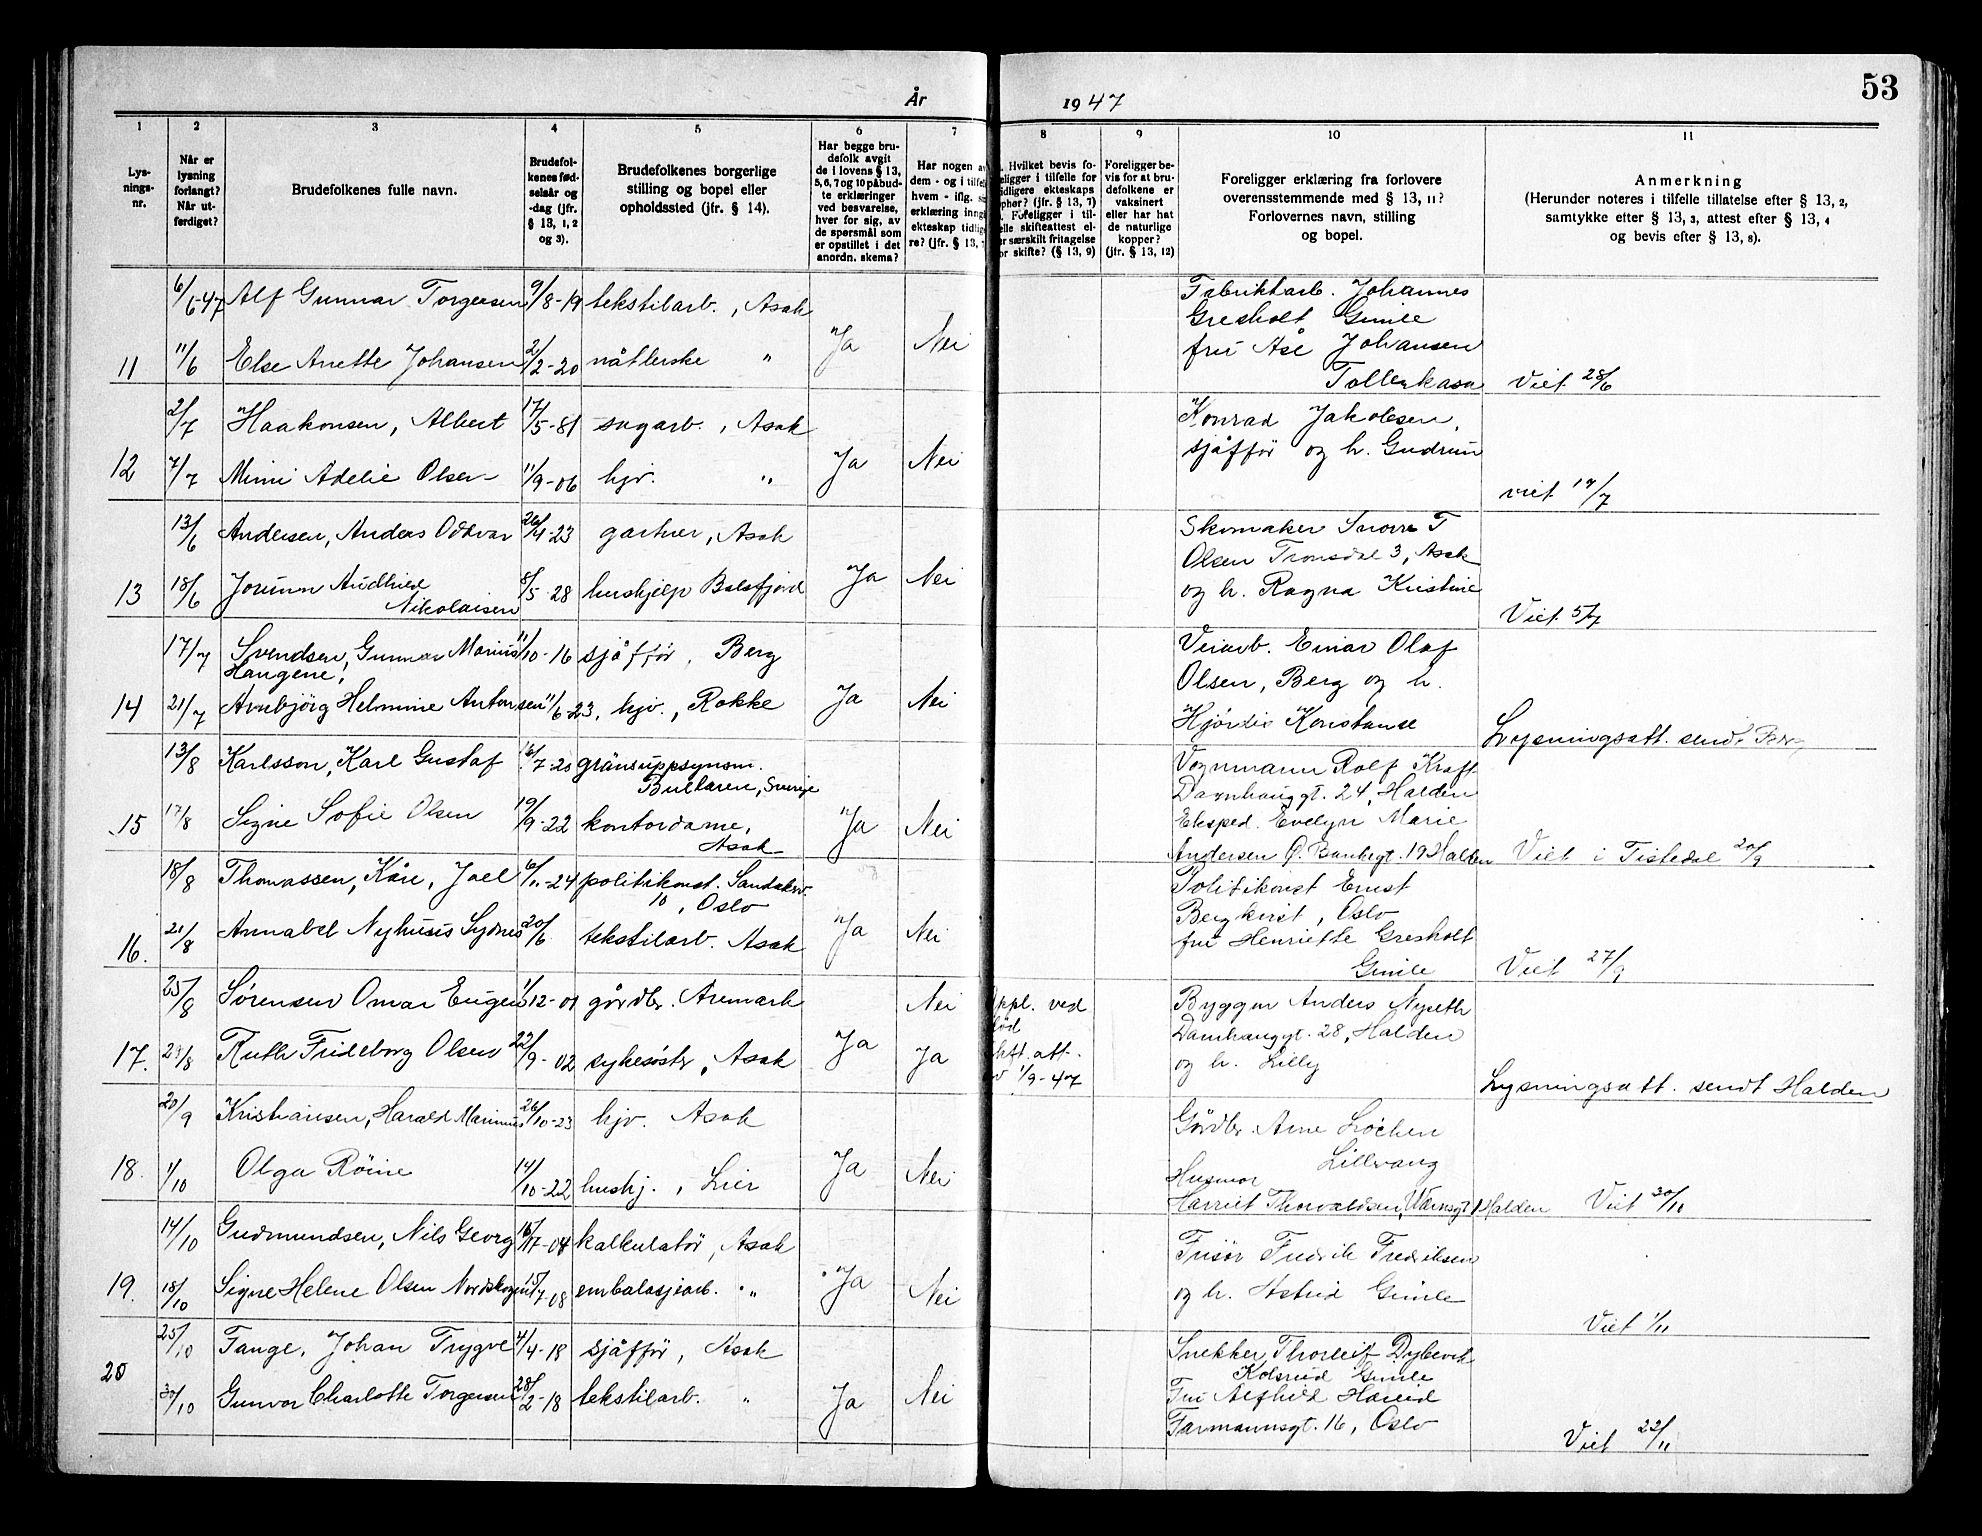 53
År 1947
1 2 3 4 5 6 7 8 9 10 11
Lys-
nings-
nr.
Når er
lysning
forlangt?
Når ut-
ferdiget?
Brudefolkenes fulle navn.
Brudefol-
kenes fød-
selsår og
-dag (jfr.
§ 13, 1, 2
og 3).
Brudefolkenes borgerlige
stilling og bopel eller
opholdssted (jfr. § 14).
Har begge bru-
defolk avgit
de i lovens § 13,
5, 6, 7 og 10 påbud-
te erklæringer
ved besvarelse,
hver for sig, av
de spørsmål som
er opstillet i det
anordn. skema?
Har nogen av
dem - og i tilfel
hvem - iflg. s
erklæring inngå
ekteskap tidlig
re? (jfr. § 13,
. Hvilket bevis fo-
eligger i tilfelle for
idligere ekteskaps
opher? (jfr. § 13, 7)
. Foreligger i til-
elle skifteattest el-
er særskilt fritagelse
or skifte? (§ 13, 9)
Foreligger be-
vis for at bru-
defolkene er
vaksinert
eller har hat
de naturlige
kopper?
(jfr. § 13, 12)
Foreligger erklæring fra forlovere
overensstemmende med § 13, 11?
Forlovernes navn, stilling
og bopel.
Anmerkning
(Herunder noteres i tilfelle tillatelse efter § 13, 2,
samtykke efter § 13, 3, attest efter § 13, 4
og bevis efter § 13, 8).
6/6-47 Alf Gunnar Torgersen 9/8-19 tekstilarb., Asak
11 11/6 Else Anette Johansen 2/2-20 nåtlerske " Ja Nei
Fabrikkarb. Johannes
Gresholt Gimle
fru Åse Johansen
Tollerkasa Viet 28/6
2/7 Haakonsen, Albert 17/5-81 sagarb., Asak
12 7/7 Mimi Adelie Olsen 11/9-06 hjv. " Ja Nei
Konrad Jakobsen,
sjåffør og h. Gudrun
viet 19/7
13/6 Andersen, Anders Oddvar 26/4-23 gartner, Asak
13 18/6 Jorunn Audhild
Nikolaisen 8/5-28 hushjelp Balsfjord Ja Nei
Skomaker Snorre T
Olsen Tronsdal 3, Asak
og h. Ragna Kristine
Viet 5/7
17/7 Svendsen, Gunnar Marius 11/10-16 sjåffør, Berg
Haugene,
14 21/7 Arnbjörg Helmine Antonsen 11/6-23, hjv., Rokke Ja Nei
Veiarb. Einar Olaf
Olsen, Berg og h.
Hjördis Konstanse
Lysningsatt. sendt Berg
13/8 Karlsson, Karl Gustaf 16/7-20 gränsuppsynsm.
Bullaren, Sverige
15 17/8 Signe Sofie Olsen 19/9-22 kontordame,
Asak Ja Nei
Vognmann Rolf Kraft
Damhauggt. 24, Halden
Eksped. Evelyn Marie
Andersen Ø. Bankegt. 19 Halden Viet i Tistedal 20/9
18/8 Thomassen, Kåre, Joel 6/11-24 politikonst. Sandakerv.
10, Oslo
16. 21/8 Annabel Nyhuus Sydnes 20/6 tekstilarb. Asak Ja Nei
Politikonst Ernst
Bergkvist, Oslo
fru Henriette Gresholt
Gimle Viet 27/9
25/8 Sørensen Omar Eugen 1/12-01 gårdbr. Aremark Nei
17. 28/8 Ruth Frideborg Olsen 22/9-02 sykesøster, Asak Ja Ja
Oppl. ved
død
skft. att.
av 1/9-47
Byggm Anders Nyseth
Damhauggt. 28, Halden
og h. Lilly
Lysningsatt. sendt Halden
20/9 Kristiansen, Harald Marinus 26/10-23 hjv. Asak
18. 1/10 Olga Röine 14/10-22 hushj., Lier Ja Nei
Gårdbr. Arne Löchen
Lillevang
Husmor
Harriet Thorvaldsen, Wærnsgt 1 Halden Viet 30/11
14/10 Gudmundsen, Nils Georg 16/7-04 kalkulatør, Asak
19. 18/10 Signe Helene Olsen Nordskogen 15/7-08 embalasjearb. " Ja Nei
Frisør Fredrik Fredriksen
og h. Astrid Gimle
Viet 1/11
25/10 Tange, Johan Trygve 4/4-18 sjåffør, Asak
20 30/10 Gunvor Charlotte Torgersen 28/2-18 tekstilarb. " Ja Nei
Snekker Thorleif Dybevik
Kolsrud Gimle
Fru Alfhild Hareid
Farmannsgt. 16, Oslo
Viet 22/11